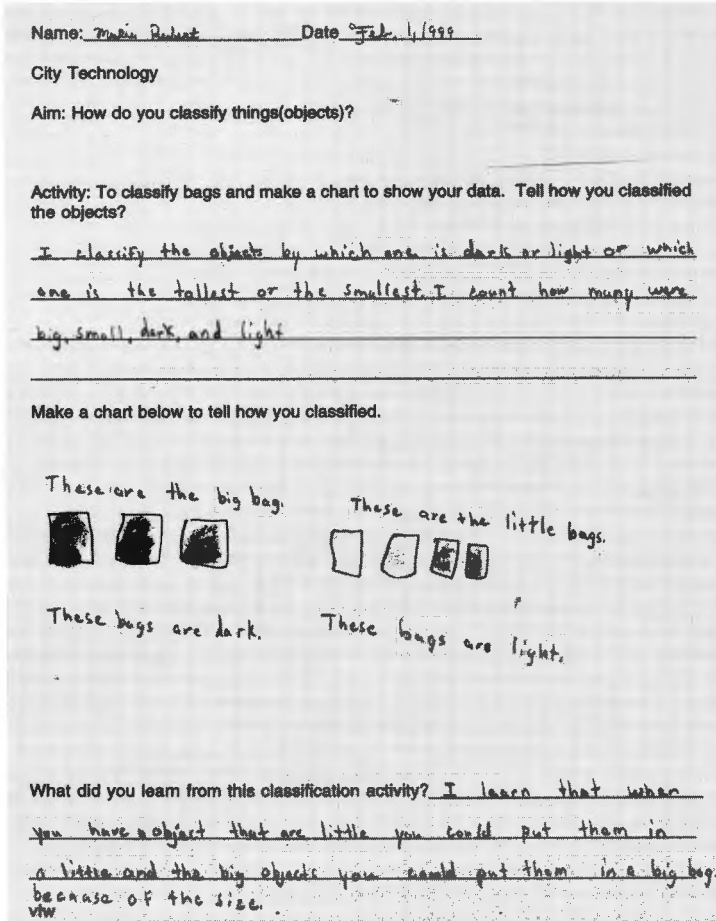 Name: Date Feb. 1, 1999
City Technology
Aim: How do you classify things(objects)?
Activity: To classify bags and make a chart to show your data. Tell how you classified
the objects?
I classify the objects by which one is dark or light or which
one is the tallest or the smallest. I count how many were
big, small, dark, and light
Make a chart below to tell how you classified.
These are the big bag.
These are the little bags.
These bags are dark.
These bags are light.
What did you learn from this classification activity? I learn that when
you have a object that are little you could put them in
a little and the big objects you could put them in a big bag.
because of the size.
vtw